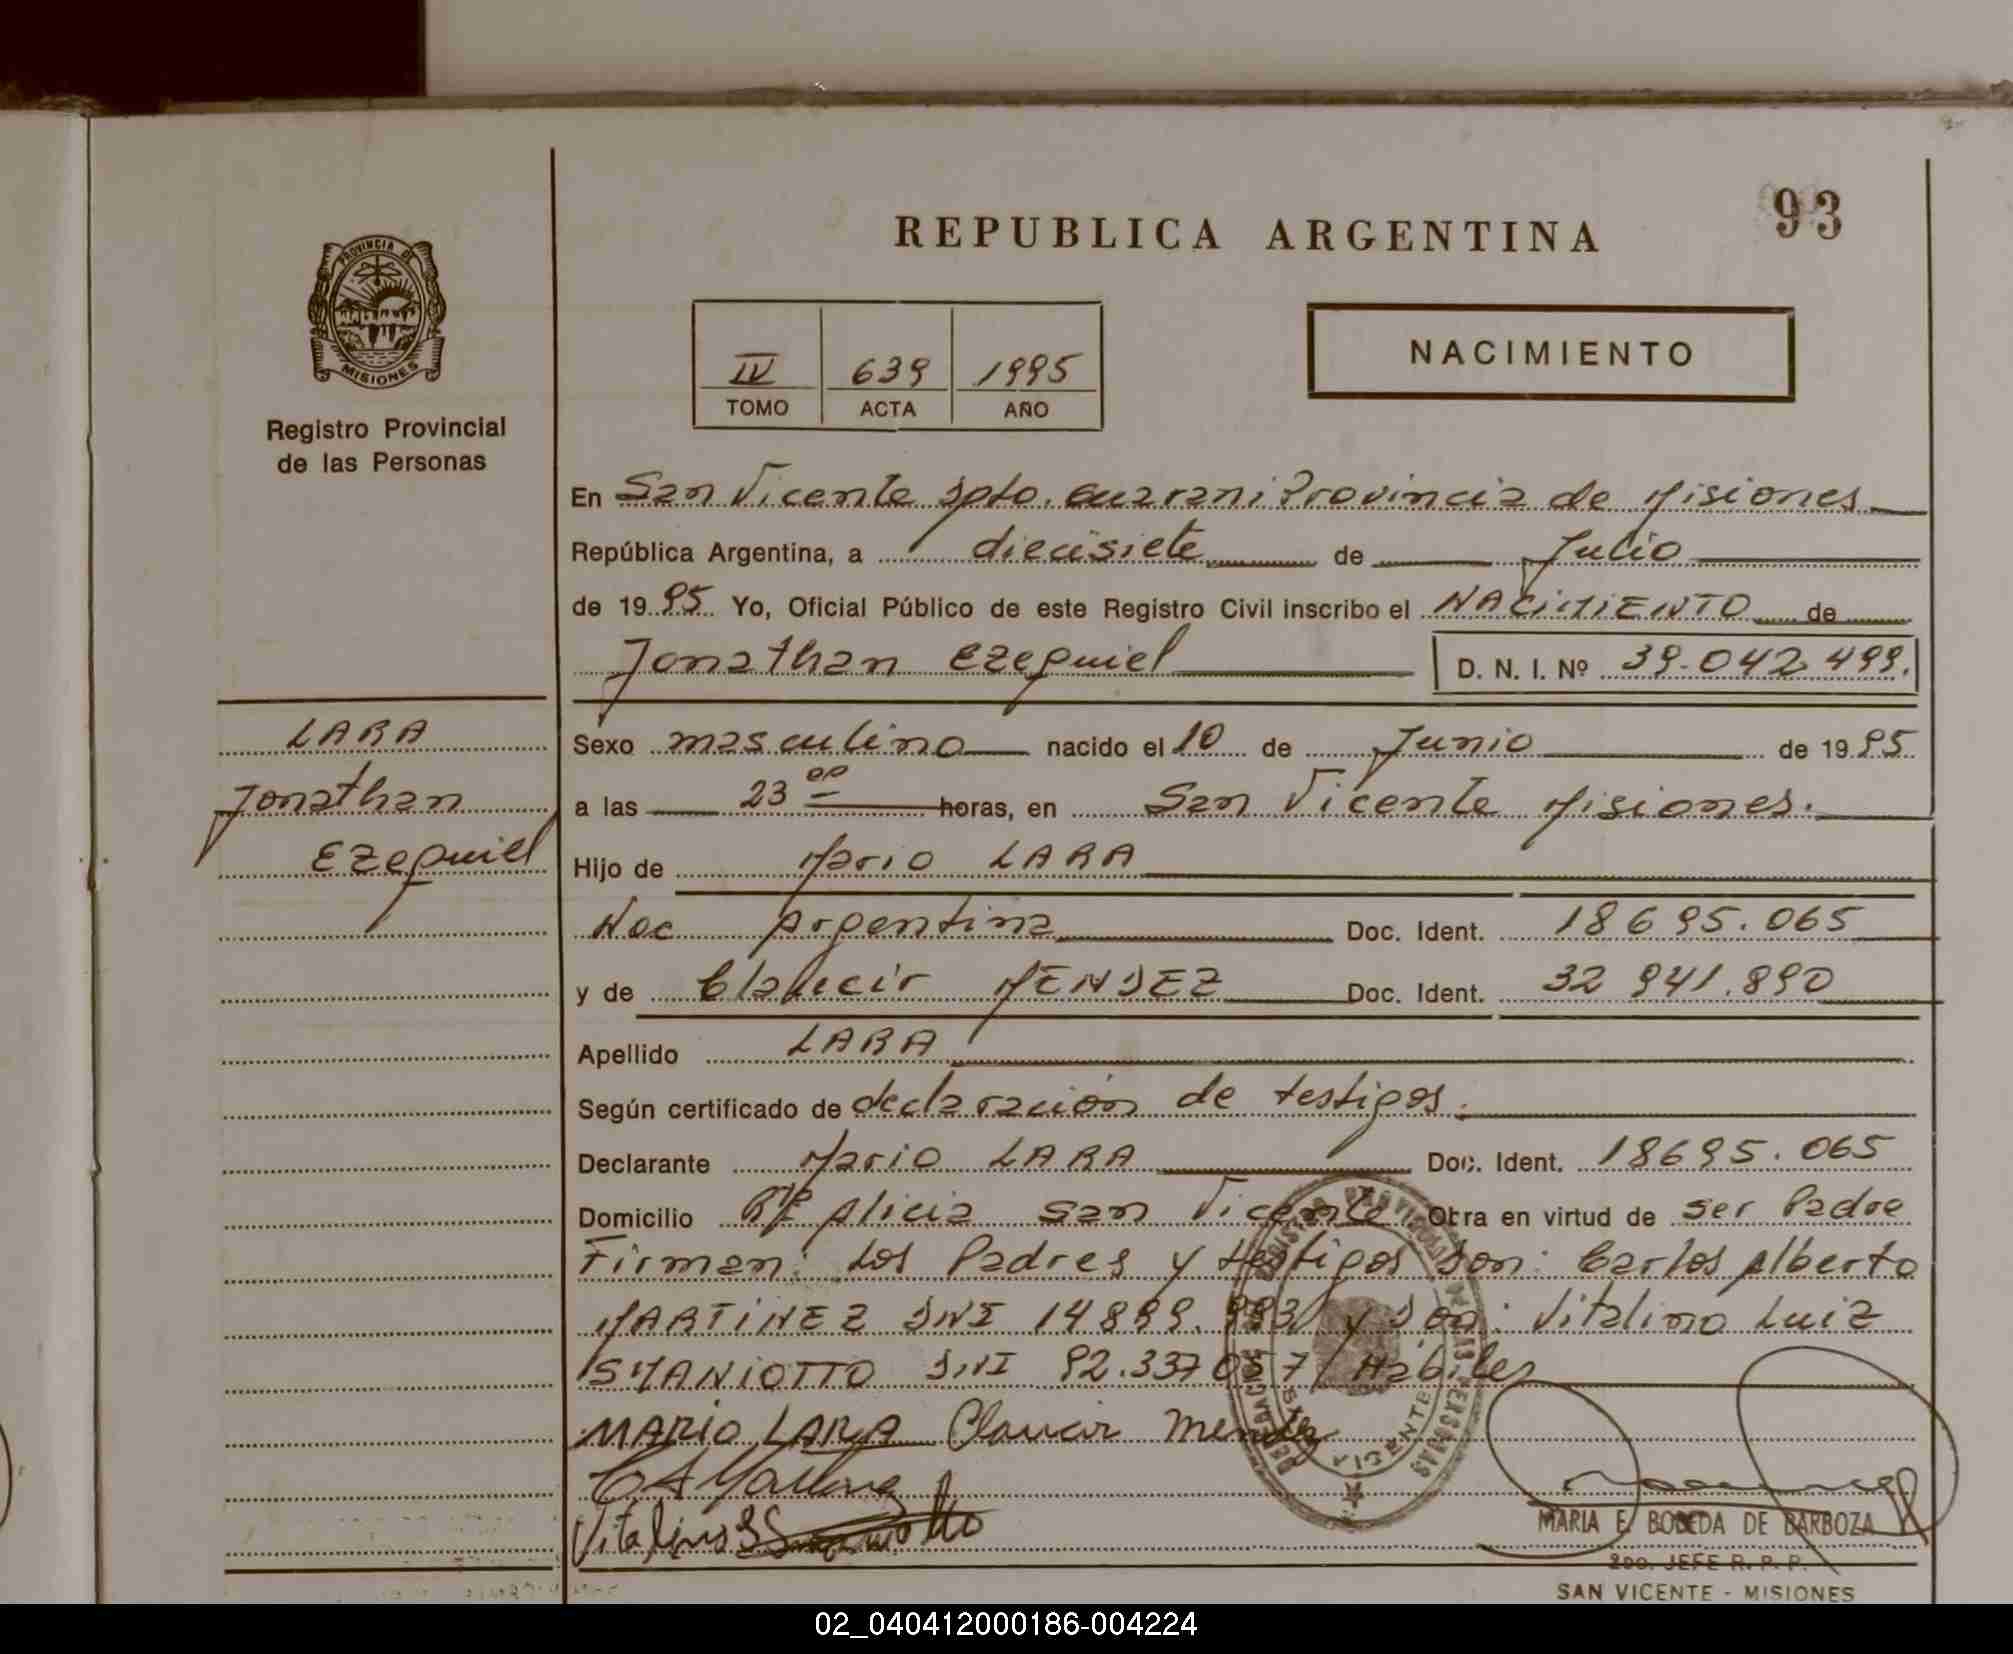 93
REPUBLICA ARGENTINA
PROVINCIA DE MISIONES
Registro Provincial
de las Personas
IV 639 1995
TOMO ACTA AÑO
NACIMIENTO
En San Vicente Dpto. Guarani Provincia de Misiones
República Argentina, a diecisiete de Julio
de 1995 Yo, Oficial Público de este Registro Civil inscribo el NACIMIENTO de
Jonathan Ezequiel D. N. I. Nº 39.042.499.
LARA
Jonathan
Ezequiel
Sexo masculino nacido el 10 de Junio de 1995
a las 23 00 horas, en San Vicente Misiones.
Hijo de Mario LARA
Nac Argentina Doc. Ident. 18695.065
y de Claucir MENDEZ Doc. Ident. 32 941.890
Apellido LARA
Según certificado de declaración de testigos.
Declarante Mario LARA Doc. Ident. 18695.065
Domicilio Pje Alicia San Vicente Obra en virtud de ser Padre
Firman: Los Padres y testigos Don: Carlos Alberto
MARTINEZ DNI 14899.993 y Don: Vitalino Luiz
SMANIOTTO DNI 92.337057 Habiles
MARIO LARA Claucir Mendez
Vitalino
MARIA E. BOBEDA DE BARBOZA
2do. JEFE R. P. P.
SAN VICENTE - MISIONES
02_040412000186-004224